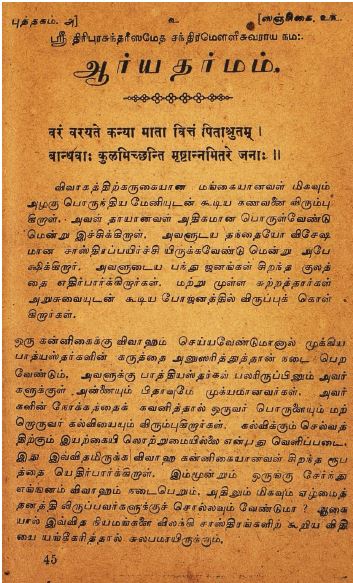 புத்தகம். அ] உ [ஸஞ்சிகை, உக.
ஸ்ரீ திரிபுரசுந்தரீஸமேத சந்திரமௌளீசுவராய நம:.
ஆர்யதர்மம்.
वरं वरयते कन्या माता वित्तं पिताश्रुतम् ।
बान्धवाः कुलमिच्छन्ति मृष्टान्नमितरे जनाः ॥
விவாகத்திற்கருகையான மங்கையானவள் மிகவும்
அழகு பொருந்திய மேனியுடன் கூடிய கணவனை விரும்பு
கிறாள். அவள் தாயானவள் அதிகமான பொருள்வேண்டு
மென்று இச்சிக்கிறாள். அவளுடய தந்தையோ விசேஷ
மான சாஸ்திரப்பயிர்ச்சி யிருக்கவேண்டு மென்று அபே
க்ஷிக்கிறார். அவளுடைய பந்து ஜனங்கள் சிறந்த குலத்
தை எதிர்பார்க்கிறார்கள். மற்று முள்ள சுற்றத்தார்கள்
அறுசுவையுடன் கூடிய போஜனத்தில் விருப்புக் கொள்
கிறார்கள்.
ஒரு கன்னிகைக்கு விவாஹம் செய்யவேண்டுமானால் முக்கிய
பாத்யஸ்தர்களின் கருத்தை அனுஸரித்துத்தான் நடை பெற
வேண்டும். அவளுக்கு பாத்தியஸ்தர்கள் பலரிருப்பினும் அவர்
களுக்குள் அன்னையும் பிதாவுமே முக்யமானவர்கள். அவர்
களின் நோக்கத்தைக் கவனித்தால் ஒருவர் பொருளையும் மற்
றொருவர் கல்வியையும் விரும்புகிறார்கள். கல்விக்கும் செல்வத்
திற்கும் இயற்கையி லொற்றுமையில்லை என்பது வெளிப்படை.
இது இவ்விதமிருக்க விவாஹ கன்னிகையானவள் சிறந்த ரூப
த்தை யெதிர்பார்க்கிறாள். இம்மூன்றும் ஒருங்கு சேர்ந்து
எங்ஙனம் விவாஹம் நடைபெறும். அதிலும் மிகவும் ஏழ்மைத்
தனத்தி லிருப்பவர்களுக்குச் சொல்லவும் வேண்டுமா ? ஆகை
யால் இவ்வித நியமங்களை விலக்கி சாஸ்திரங்களிற் கூறிய விதி
யை யங்கீகரித்தால் சுலபமாயிருக்கும்.
45